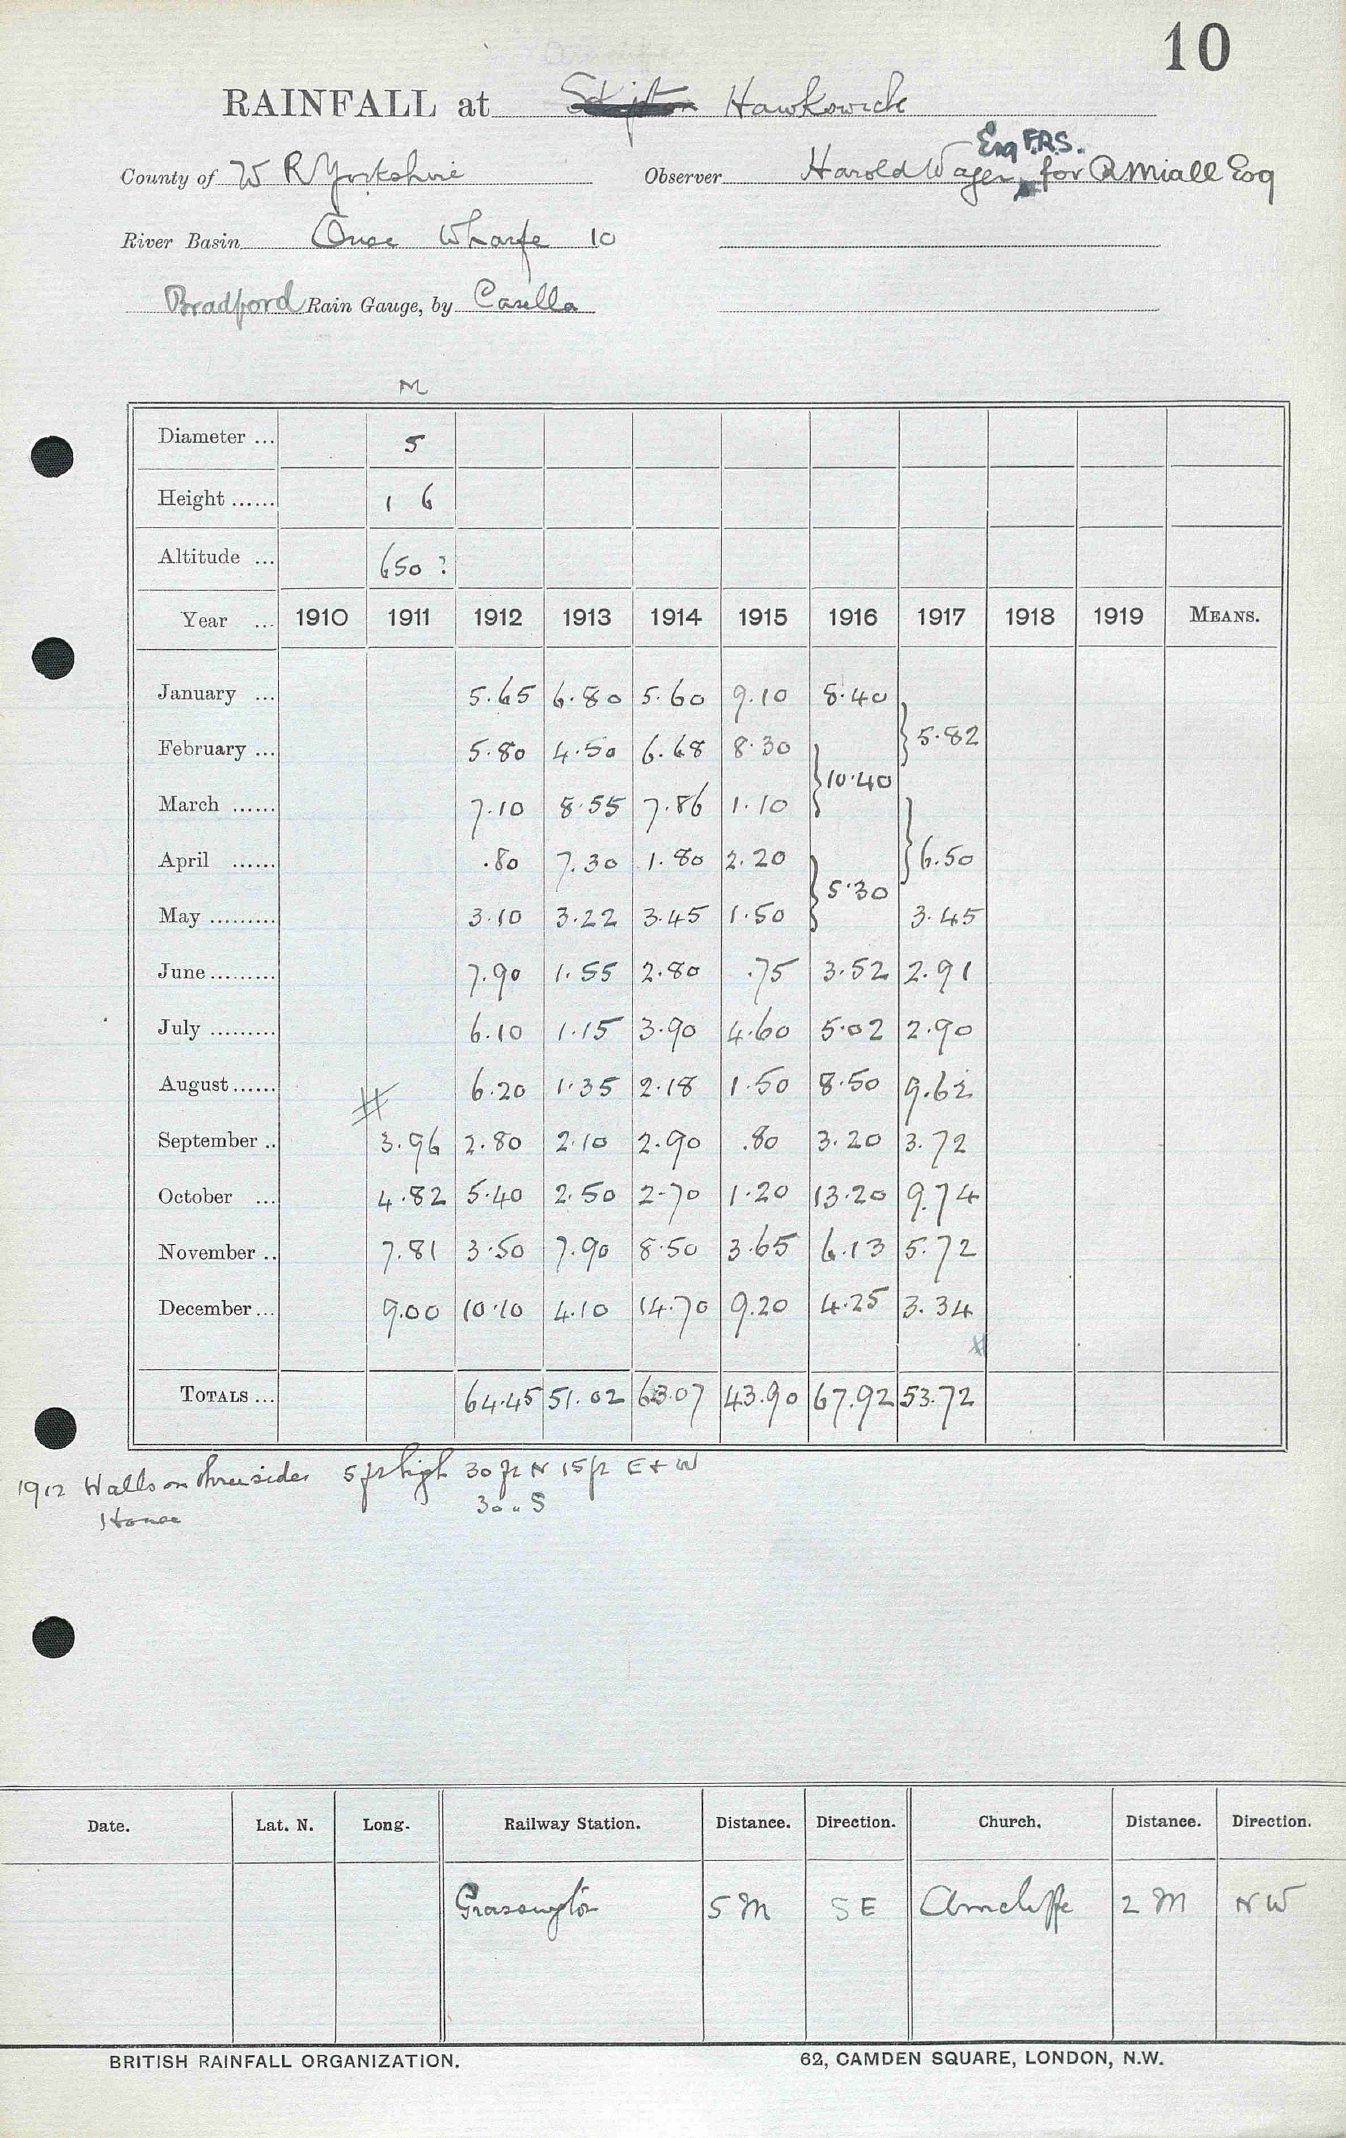 10
RAINFALL at Skipton Hawkswick
County of W R Yorkshire Observer Harold Wager Esq F.R.S. for R Miall Esq
River Basin Ouse Wharfe 10
Bradford Rain Gauge, by Casella
M
Diameter ... 5
Height ...... 1 6
Altitude ... 650 ?
Year ... 1910 1911 1912 1913 1914 1915 1916 1917 1918 1919 MEANS.
January ... 5.65 6.80 5.60 9.10 8.40
} 5.82
February ... 5.80 4.50 6.68 8.30
} 10.40
March ...... 7.10 8.55 7.86 1.10
April ...... .80 7.30 1.80 2.20 } 6.50
} 5.30
May ......... 3.10 3.22 3.45 1.50 3.45
June ......... 7.90 1.55 2.80 .75 3.52 2.91
July ......... 6.10 1.15 3.90 4.60 5.02 2.90
August ...... 6.20 1.35 2.18 1.50 8.50 9.62
September .. 3.96 2.80 2.10 2.90 .80 3.20 3.72
October ... 4.82 5.40 2.50 2.70 1.20 13.20 9.74
November .. 7.81 3.50 7.90 8.50 3.65 6.13 5.72
December ... 9.00 10.10 4.10 14.70 9.20 4.25 3.34
TOTALS ... 64.45 51.02 63.07 43.90 67.92 53.72
1912 Walls on three sides 5 ft high 30 ft N 15 ft E + W
House 30 " S
Date. Lat. N. Long. Railway Station. Distance. Direction. Church. Distance. Direction.
Grassington 5 M SE Arncliffe 2 M NW
BRITISH RAINFALL ORGANIZATION. 62, CAMDEN SQUARE, LONDON, N.W.